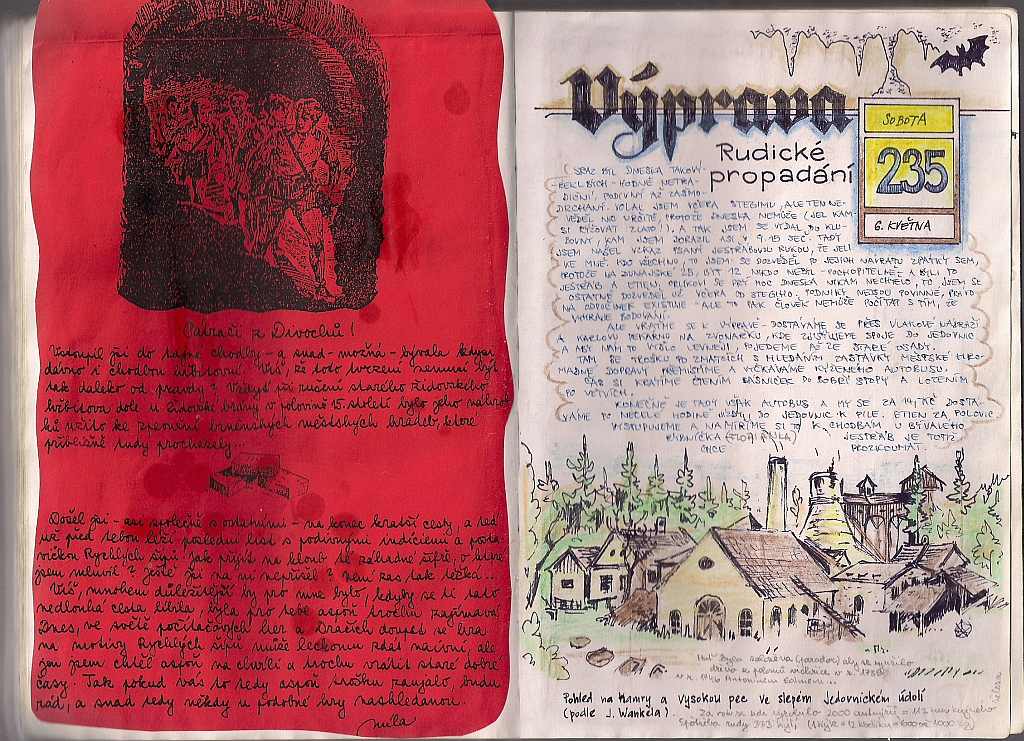 Pátrači z Divochů!
Vstoupil jsi do tajné chodby - a snad - možná - bývala kdysi
dávno i chodbou hřbitovní. Víš, že toto tvrzení nemusí být
tak daleko od pravdy? Vždyť při rušení starého židovského
hřbitova dole u Židovské brány v polovině 15. století bylo jeho náhrob-
ků užito ke zpevnění brněnských městských hradeb, které
přibližně tudy procházely...
Došel jsi - asi společně s ostatními - na konec kratší cesty, a teď
už před tebou leží poslední list s podivnými indíciemi a posta-
vičkou Rychlých šípů. Jak přijít na kloub té záhadné šifře, o které
jsem mluvil? Ještě jsi na ni nepřišel? Není zas tak těžká...
Víš, mnohem důležitější by pro mne bylo, kdyby se ti tato
nedlouhá cesta líbila, byla pro tebe aspoň trochu zajímavá.
Dnes, ve světě počítačových her a Dračích doupat se hra
na motivy Rychlých šípů může leckomu zdát naivní, ale
já jsem chtěl aspoň na chvíli a trochu vrátit staré dobré
časy. Tak pokud vás to tedy aspoň trošku zaujalo, budu
rád, a snad tedy někdy u podobné hry nashledanou.
Výprava
SOBOTA
235
6. KVĚTNA
Rudické
propadání
(SRAZ BYL DNESKA TAKOVÝ
HODNĚ NETRA-
DIČNÍ, PODIVNÝ AŽ ZASMO-
DRCHANÝ. VOLAL JSEM VČERA STEGIMU, ALE TEN NE-
VĚDĚL NIC URČITĚ, PROTOŽE DNESKA NEMŮŽE (JEL KAM-
SI RÝŽOVAT ZLATO!). A TAK JSEM SE VYDAL DO KLU-
BOVNY, KAM JSEM DORAZIL ASI V 9.15 SEČ. TADY
JSEM NAŠEL VZKAZ PSANÝ JESTŘÁBOVOU RUKOU, ŽE JELI
KE MNĚ. KDO VŠECHNO, TO JSEM SE DOZVĚDĚL PO JEJICH NÁVRATU ZPÁTKY SEM,
PROTOŽE NA DUNAJSKÉ 25, BYT 12 NIKDO NEBYL - POCHOPITELNĚ: A BYLI TO
JESTŘÁB A ETIEN. PRLIKOVI SE PRÝ MOC DNESKA NIKAM NECHTĚLO, TO JSEM SE
OSTATNĚ DOZVĚDĚL UŽ VČERA OD STEGIHO. PODNIKY NEJSOU POVINNÉ, PRÁVO
NA ODPOČINEK EXISTUJE, ALE TO PAK ČLOVĚK NEMŮŽE POČÍTAT S TÍM, ŽE
VYHRAJE BODOVÁNÍ.
ALE VRAŤME SE K VÝPRAVĚ - DOSTÁVÁME SE PŘES VLAKOVÉ NÁDRAŽÍ
A KARLOVU PEKÁRNU NA ZVONAŘKU, KDE ZJIŠŤUJEME SPOJE DO JEDOVNIC
A ABY NÁM TO VYŠLO LEVNĚJI, POJEDEME AŽ ZE STARÉ OSADY.
TAM SE TROŠKU PO ZMATCÍCH S HLEDÁNÍM ZASTÁVKY MĚSTSKÉ HRO-
MADNÉ DOPRAVY PŘEMÍSTÍME A VYČKÁVÁME KÝŽENÉHO AUTOBUSU.
ČAS SI KRÁTÍME ČTENÍM BÁSNIČEK DO BOBŘÍ STOPY A LOZENÍM
PO VĚTVÍCH.
KONEČNĚ JE TADY VŠAK AUTOBUS A MY SE ZA 14,- KČ DOSTÁ-
VÁME PO NECELÉ HODINĚ JÍZDY DO JEDOVNIC K PILE. ETIEN ZA POLOVIC.
VYSTUPUJEME A NAMÍŘÍME SI TO K CHODBÁM U BÝVALÉHO
RYBNÍČKA (FLORIÁNLA) JESTŘÁB JE TOTIŽ
CHCE PROZKOUMAT.
Pohled na Hamry a vysokou pec ve slepém Jedovnickém údolí
(podle J. Wankela).